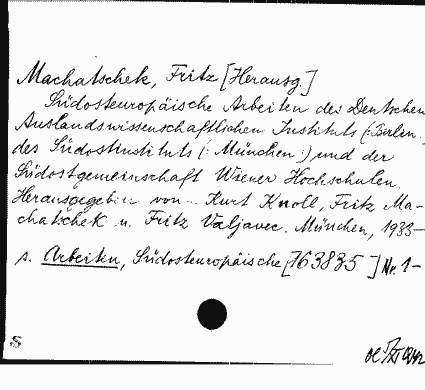 Machatschek, Fritz [Herausg.]
Südosteuropäische Arbeiten des Deutschen
Auslandswissenschaftlichen Instituts (:Berlin:)
des Südostinstituts (:München:) und der
Südostgemeinschaft Wiener Hochschulen.
Herausgegeben von .. Kurt Knoll, Fritz Ma-
chatschek u. Fritz Valjavec. München, 1933-
s. Arbeiten, Südosteuropäische [763835] Nr. 1-
S